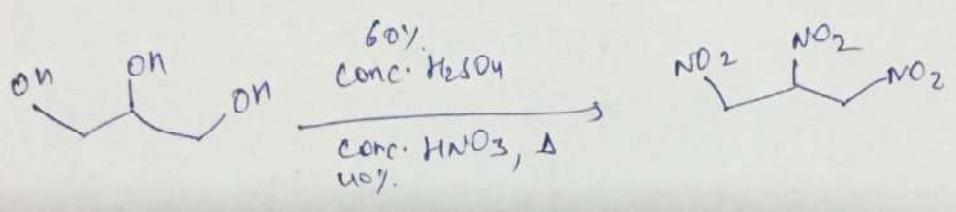 OH
OH
OH
60%.
Conc. H2SO4
Conc. HNO3, Δ
40%.
NO2
NO2
NO2